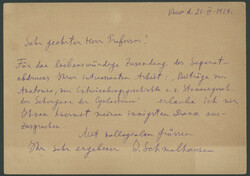 d. 21 II 1926.
Sehr geehrter Herr Professor!
Für das liebenswürdige Zusendung der Separat-
abdruckes Ihrer interessanten Arbeit: „Beiträge zur
Anatomie, zur Entwicklungsgeschichte u. z. Stammesgesch.
der Sehorgane der Cyclostomen" erlaube ich mir
Ihnen hiermit meinen innigsten Dank aus-
zusprechen.
Mit kollegialen Grüssen
Ihr sehr ergebener Schmalhausen